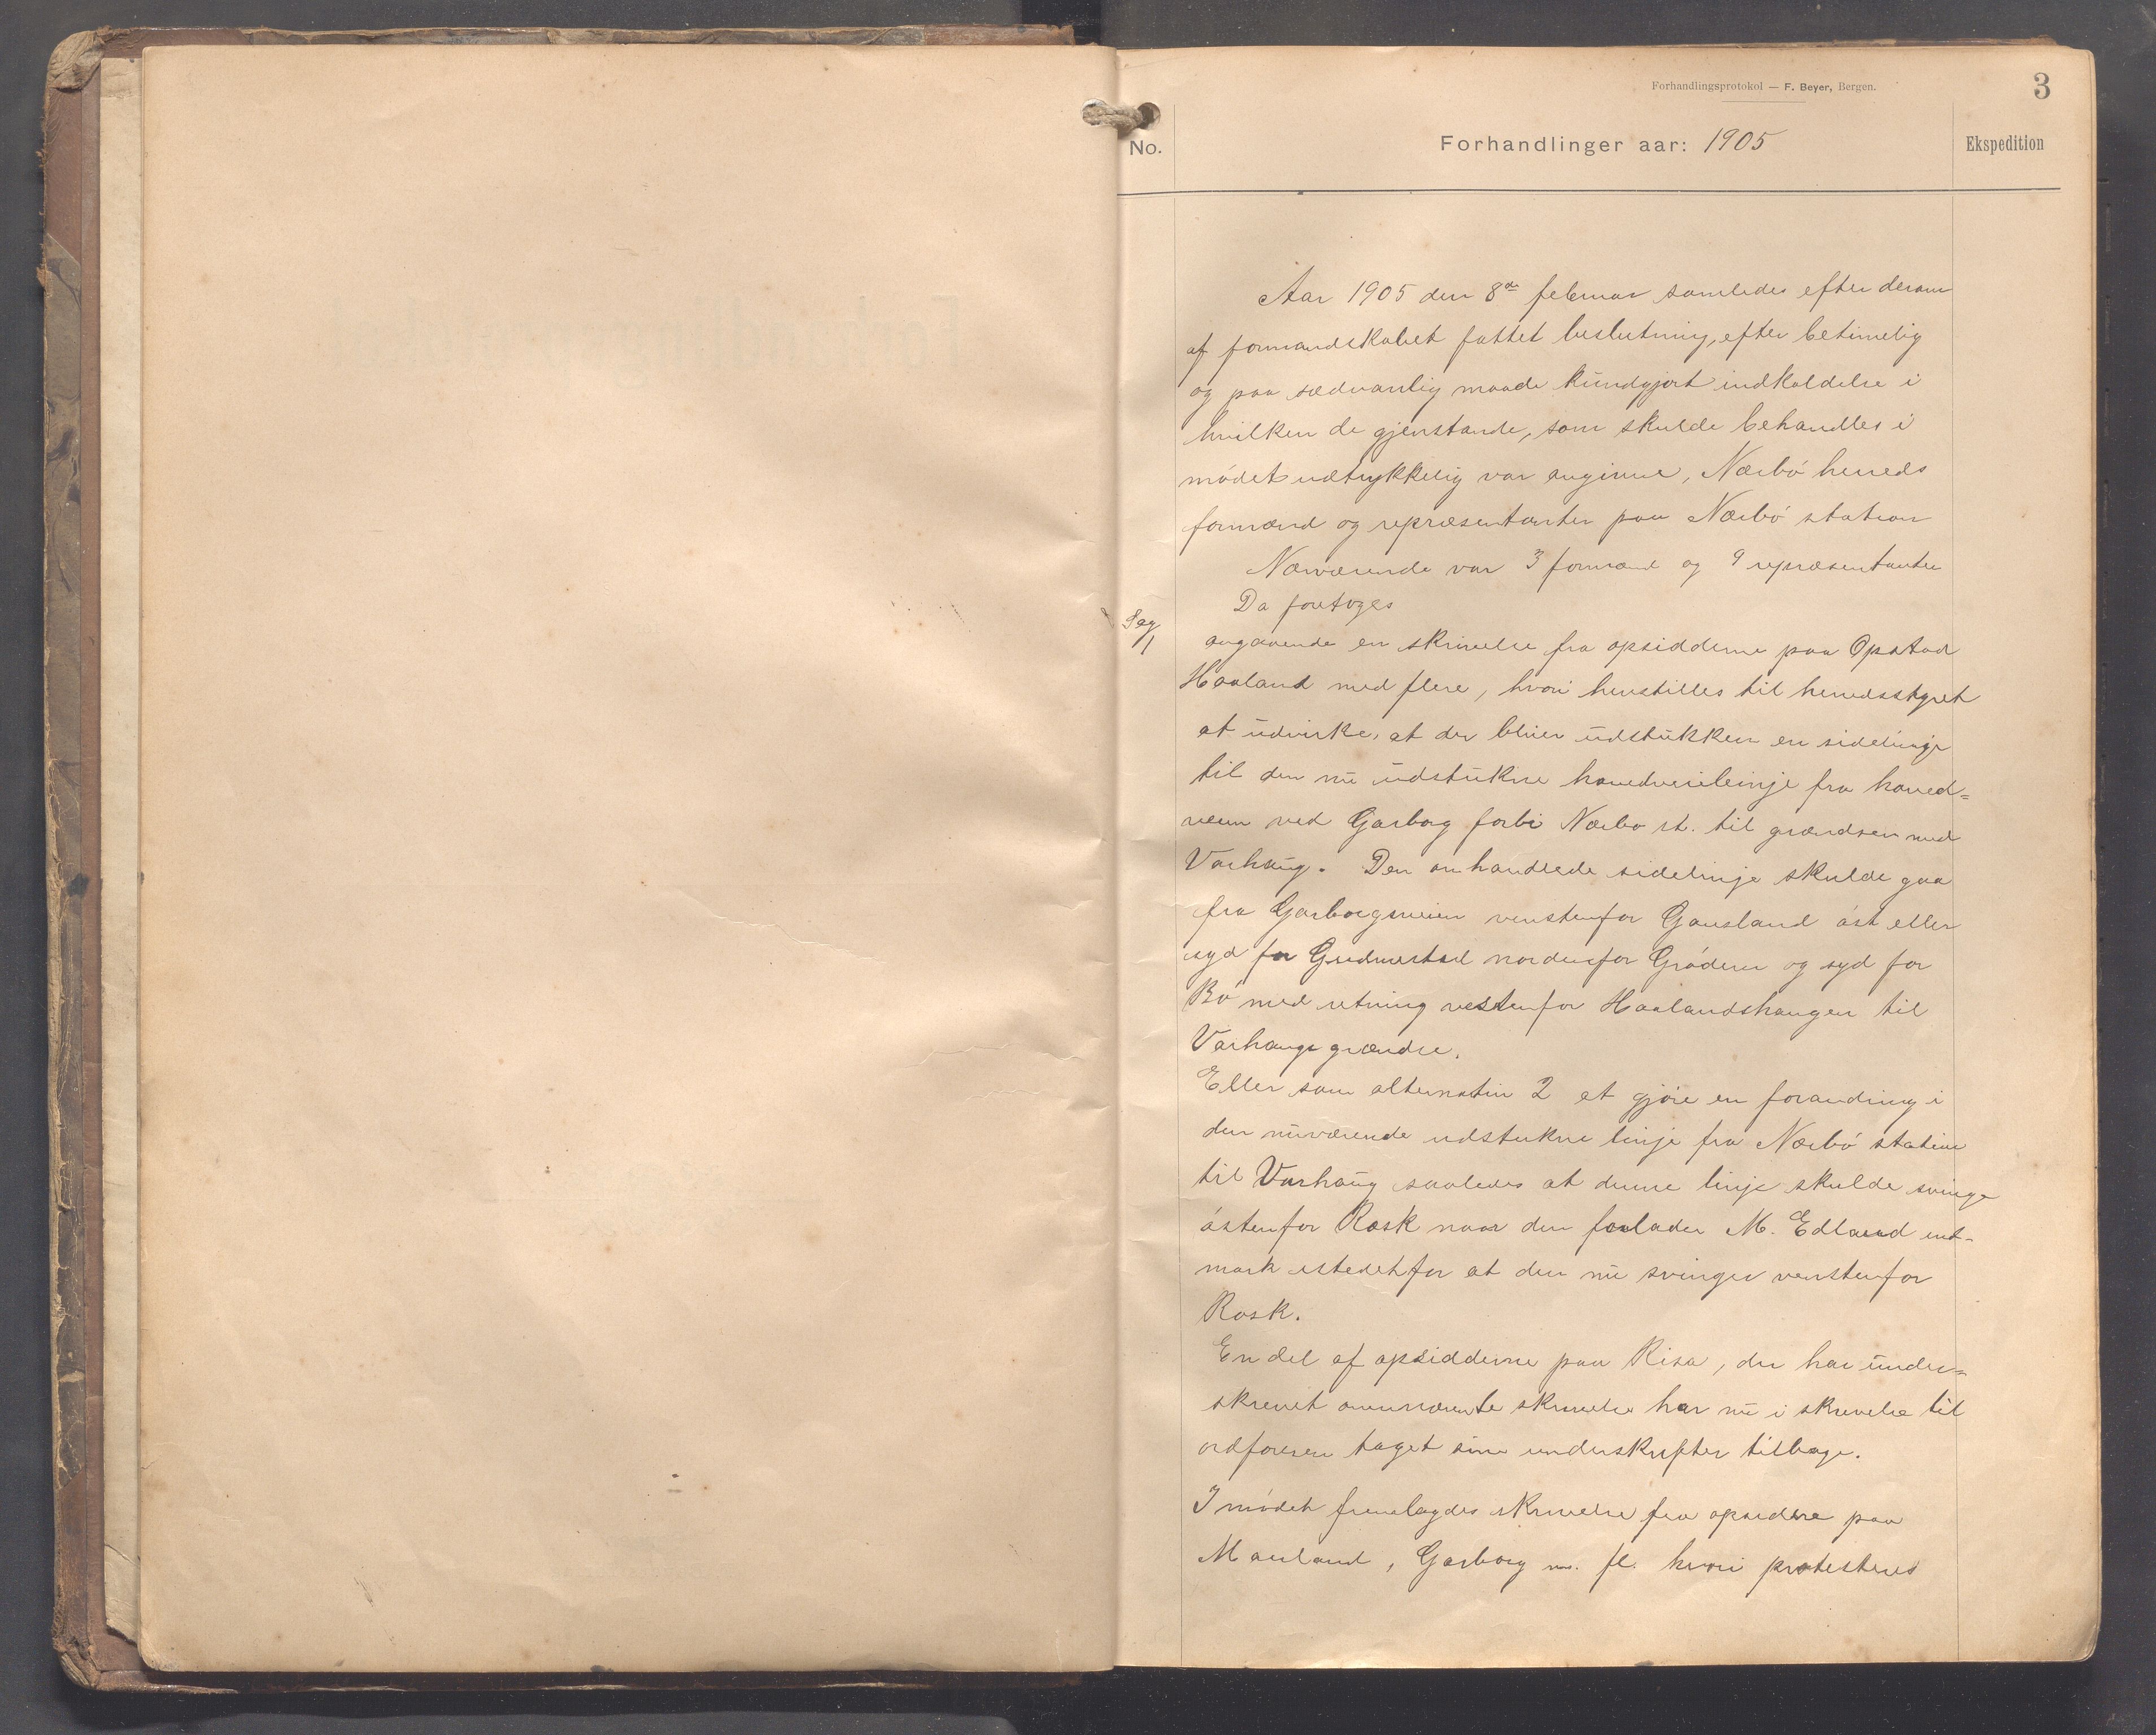 Forhandlingsprotokol — F. Beyer, Bergen.
3
No.
Forhandlinger aar: 1905
Ekspedition
Aar 1905 den 8de februar samledes efter derom
af formandskabet fattet beslutning, efter betimelig
og paa sædvanlig maade kundgjort indkaldelse i
hvilken de gjenstande, som skulde behandles i
mødet udtrykkelig var angivne, Nærbø herreds
formænd og repræsentanter paa Nærbø station
Nærværende var 3 formænd og 9 repræsentanter
Da foretoges
Sag 1
angaaende en skrivelse fra opsidderne paa Opstad
Haaland med flere, hvori henstilles til herredsstyret
at udvirke, at der bliver udstukken en sidelinje
til den nu udstukne hovedveilinje fra hoved=
veien ved Garborg forbi Nærbø st. til grændsen med
Varhaug. Den omhandlede sidelinje skulde gaa
fra Garborgsveien vestenfor Gausland øst eller
syd for Gudmestad nordenfor Grødem og syd for
Bø med retning vestenfor Haalandshaugen til
Varhaugs grændse.
Eller som alternativ 2 at gjøre en forandring i
den nuværende udstukne linje fra Nærbø station
til Varhaug saaledes at denne linje skulde svinge
østenfor Rosk naar den forlader M. Edland ud-
mark istedetfor at den nu svinger vestenfor
Rosk.
En del af opsidderne paa Risa, der har under=
skrevet ovennævnte skrivelse har nu i skrivelse til
ordføreren taget sine underskrifter tilbage.
I mødet fremlagdes skrivelse fra opsidere paa
Mauland, Garborg m. fl. hvori protesteres